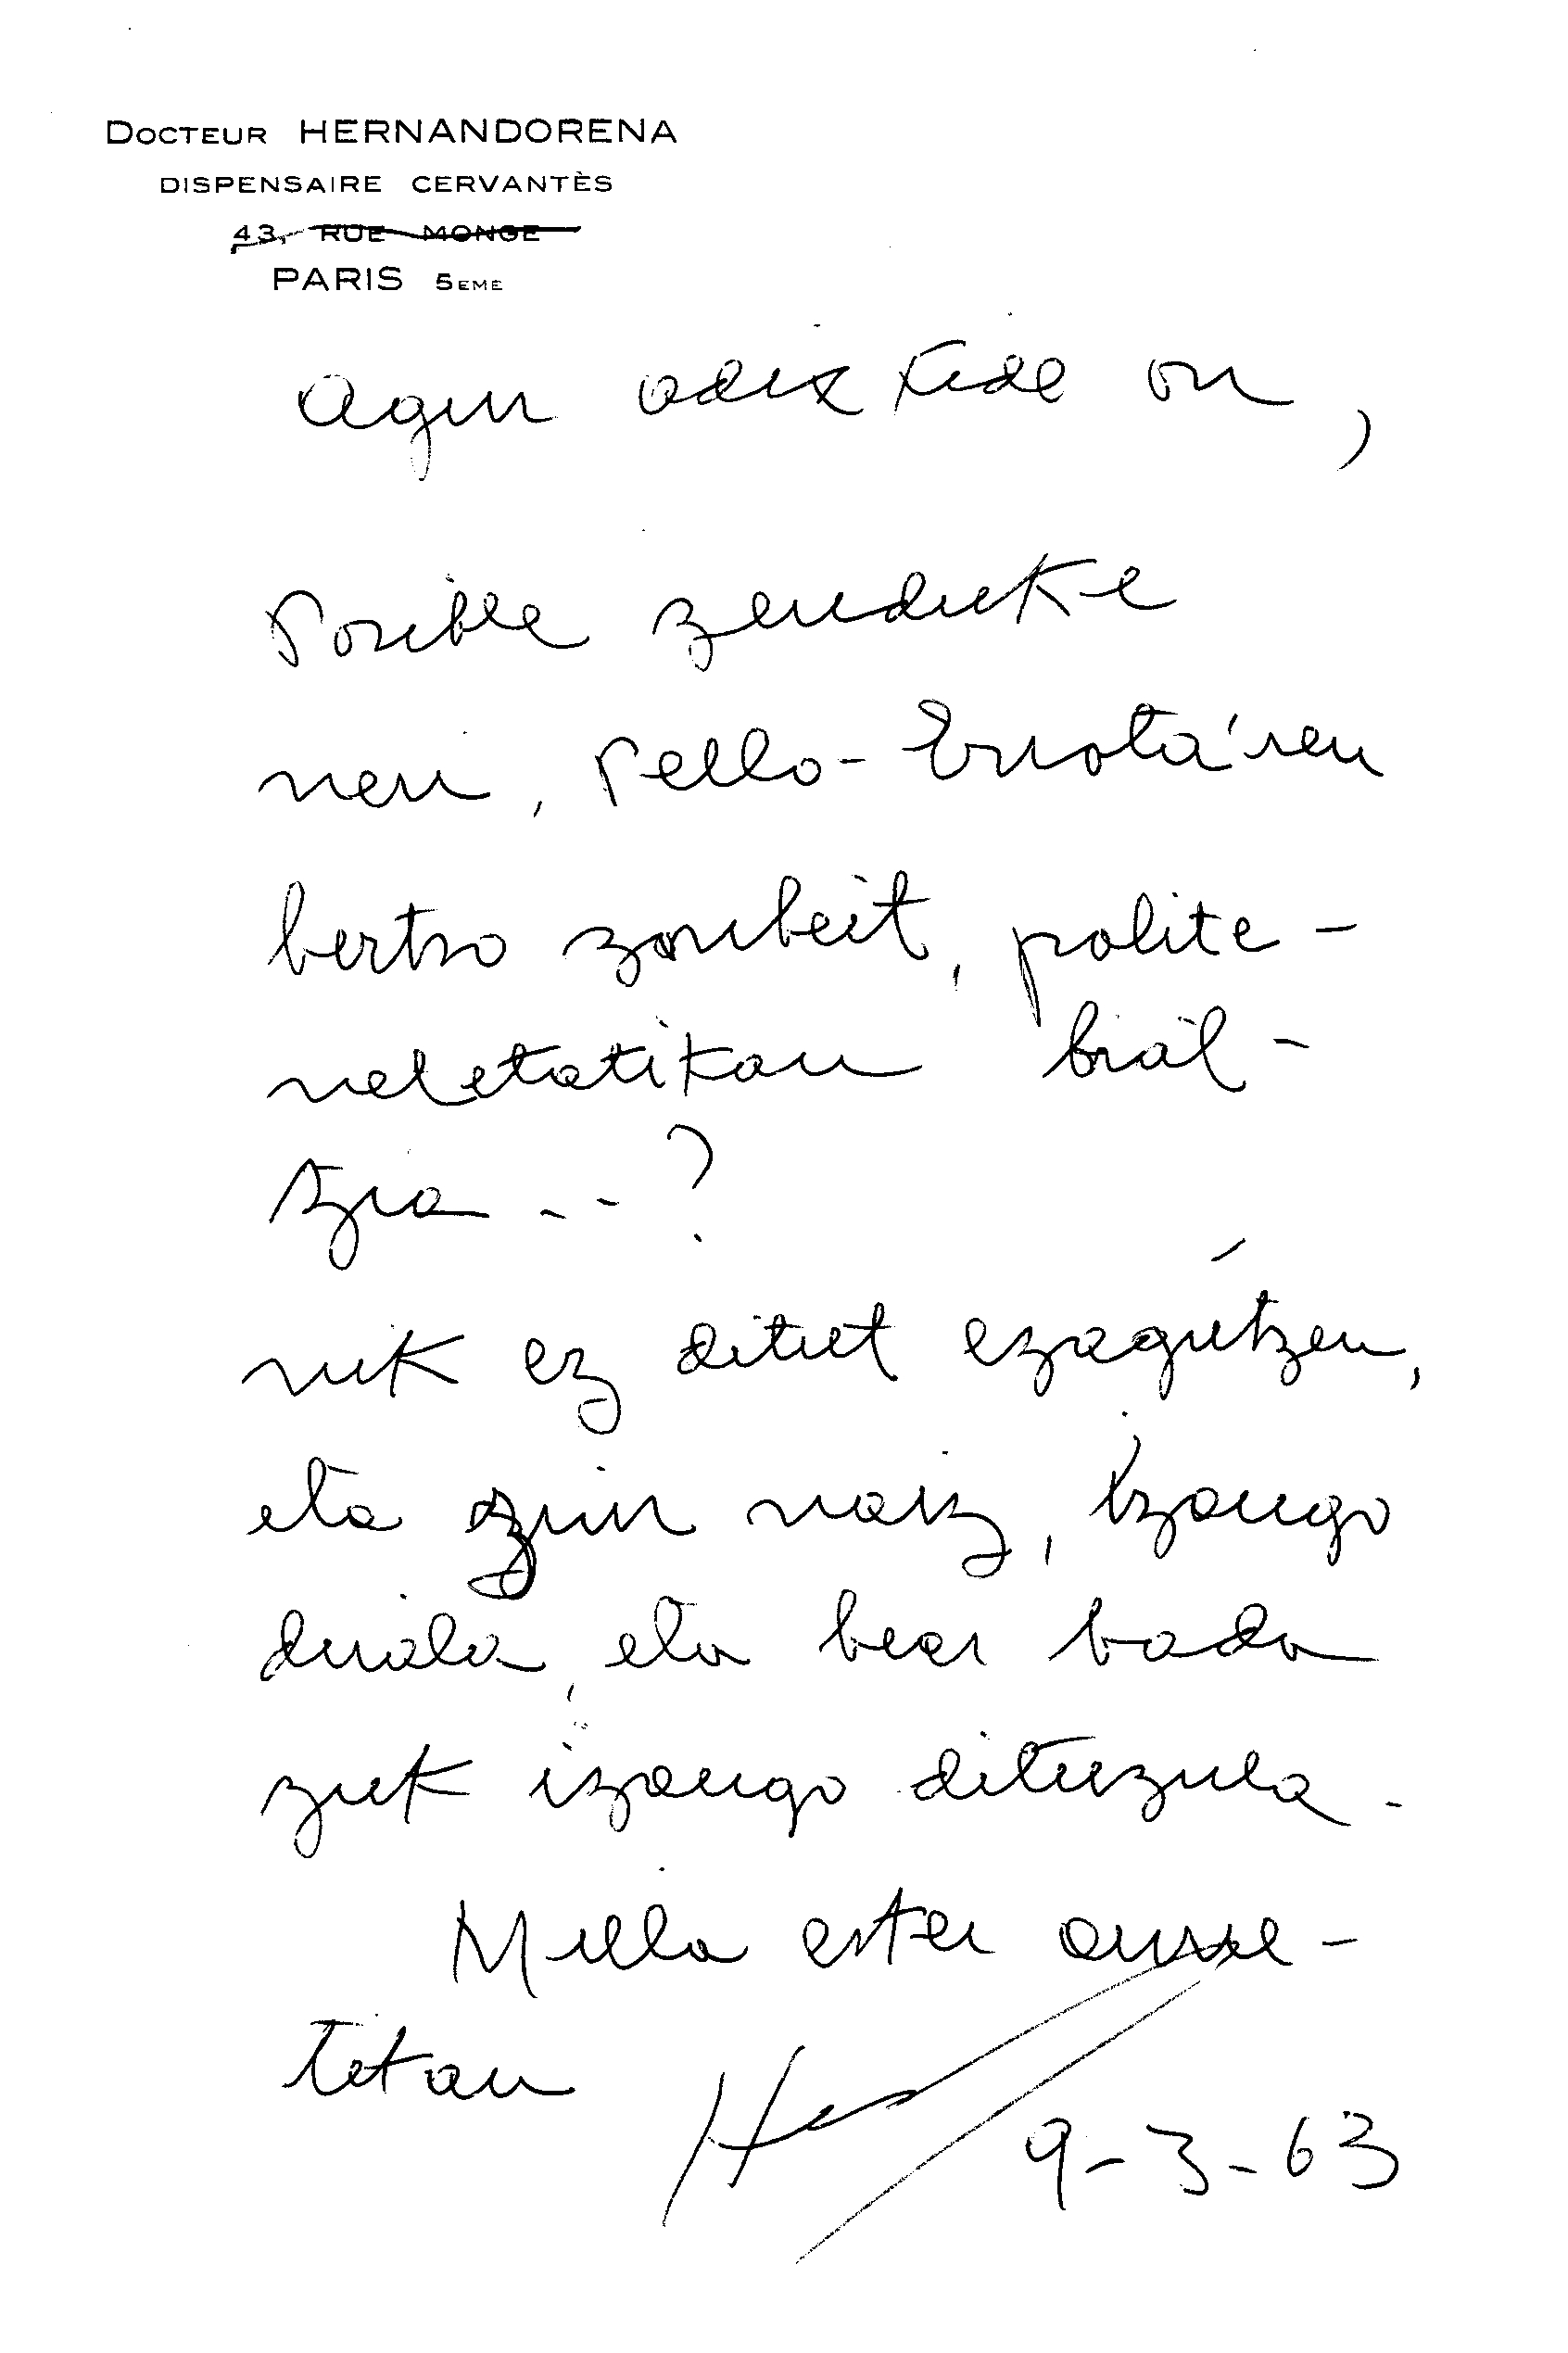 DOCTEUR HERNANDORENA
DISPENSAIRE CERVANTÈS
43, RUE MONGE
PARIS 5EME
Agur adixkide on,
Posible zenduke
neri, Pello-Errota'ren
bertso zonbeit, polite-
netatikan bial-
tzia --?
nik ez ditut ezagútzen,
eta ziur naiz, izango
dirala, eta bear bada
zuk izango dituzula.
Milla esker aurre-
tikan
9-3-63